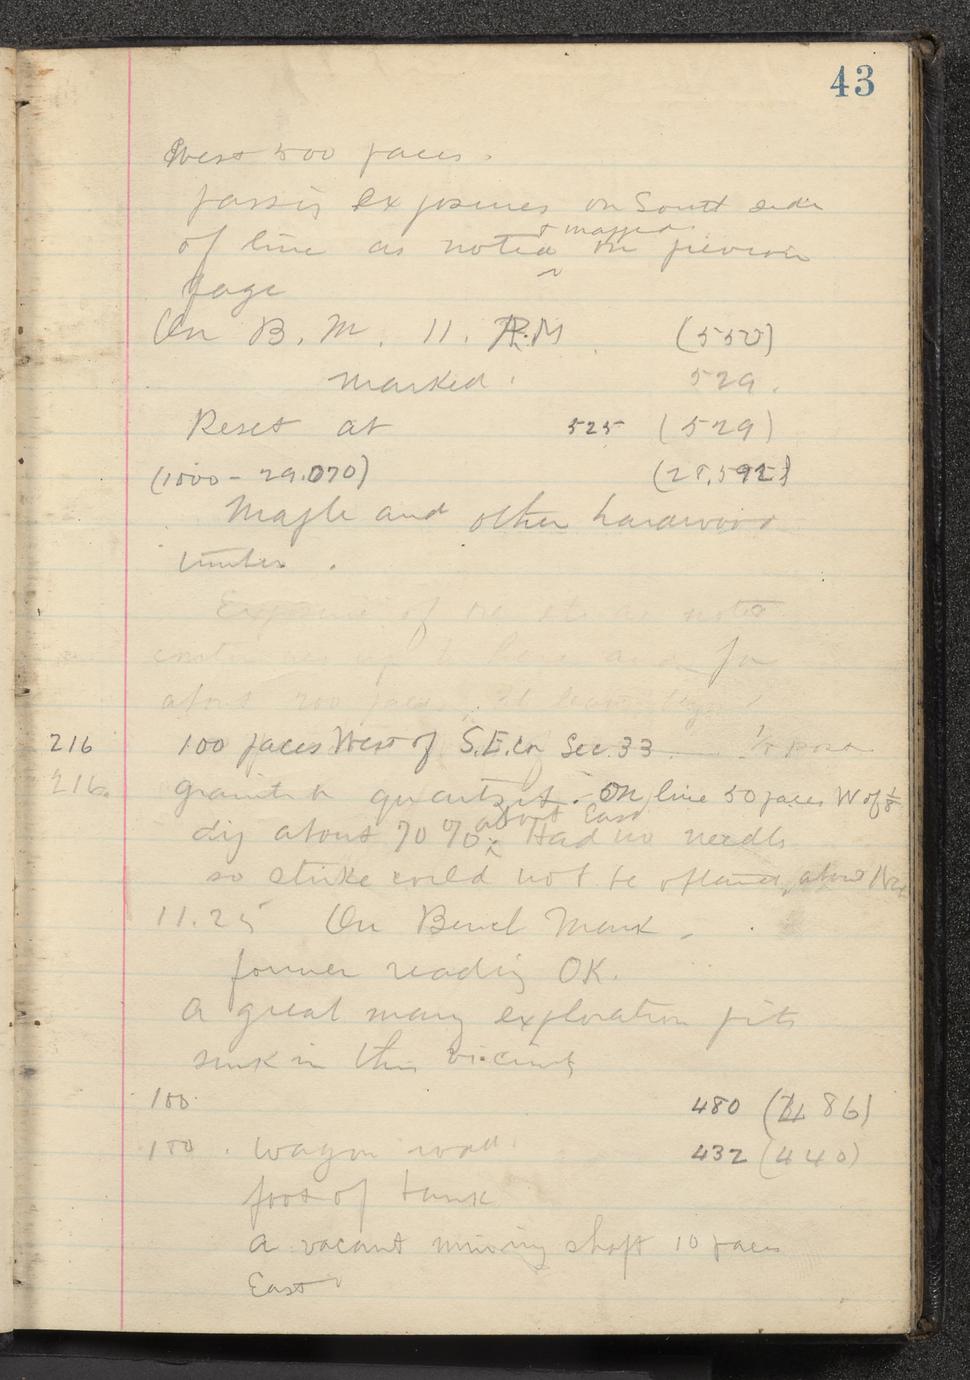 43
West 500 paces.
passing exposures on South side
of line as noted & mapped on previous
page
On B. M. 11. A.M. (550)
marked. 529.
Reset at 525 (529)
(1000 - 29.070) (28,592)
Maple and other hardwood
timber.
Exposure of as noted
continues up to here and for
about 200 paces
216 100 paces West of S.E. Cor Sec. 33
216. granite or quartzite. On line 50 paces W of 1/8
dip about 70% about East. Had no needle
so strike could not be obtained, about N
11.25 On Bench Mark.
former reading OK.
A great many exploration pits
sunk in this vicinity
100. 480 (486)
100. wagon road 432 (440)
foot of bank
A vacant mining shaft 10 paces
East